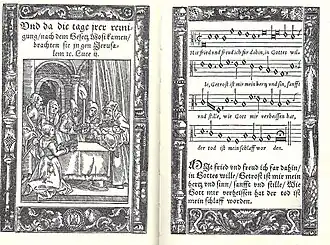 Und da die tage jrer reini-
gung/nach dem Gesetz Mosi kamen/
brachten sie jn gen Jerusa-
lem ꝛc. Luce ij.
Mit fried und freud ich far dahin, in Gottes wil-
le, Getrost ist mir mein hertz und sin, sanfft
und stille, wie Gott mir verheissen hat,
der tod ist mein schlaff wor den.
MIt fried und freud ich far dahin/
in Gottes wille/ Getrost ist mir mein
hertz und sinn/ sanfft und stille/ Wie
Gott mir verheissen hat der tod ist
mein schlaff worden.